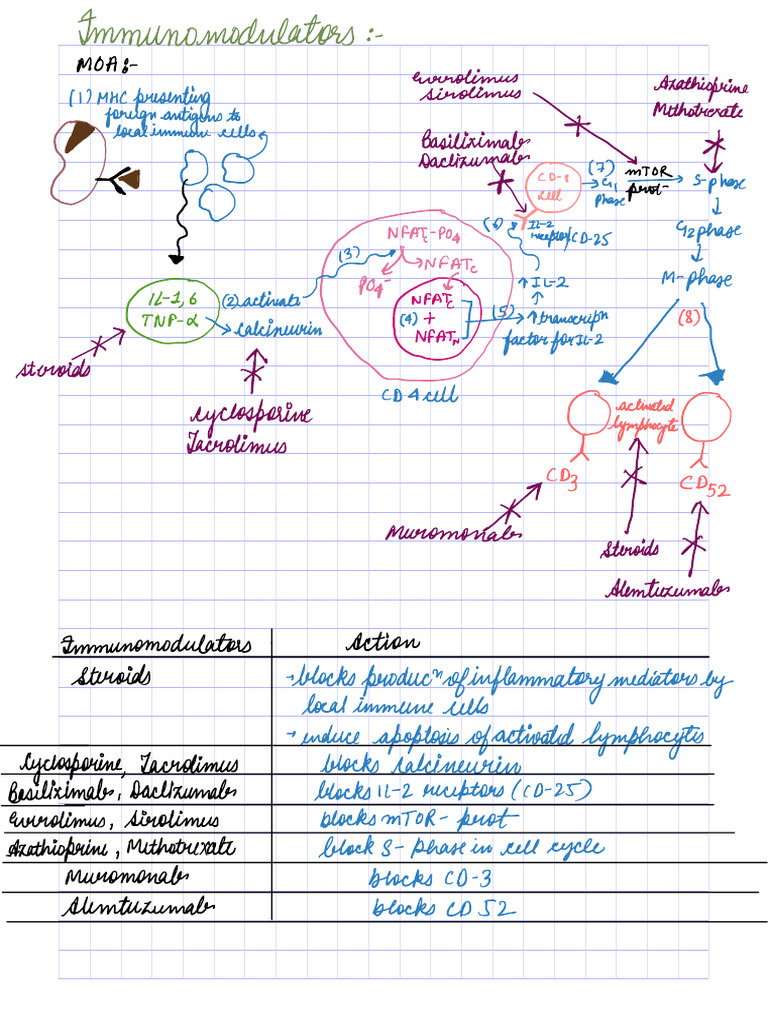 Immunomodulators :-
MOA :-
(1) MHC presenting
foreign antigens to
local immune cells
IL-1, 6
TNP-α
(2) activate
calcineurin
Steroids
Cyclosporine
Tacrolimus
(3)
NFATc-PO4
PO4-
NFATc
NFATc
(4) +
NFATN
CD4 cell
(5)
↑ transcriptn
factor for IL-2
↑ IL-2
(6)
IL-2
receptor/CD-25
Basiliximab
Daclizumab
Everolimus
Sirolimus
CD-8
cell
(7)
G1
phase
mTOR
prot-
Azathioprine
Methotrexate
S-phase
G2 phase
M-phase
(8)
activated
lymphocyte
CD3
CD52
Muromonab
Steroids
Alemtuzumab
Immunomodulators
Action
Steroids
→ blocks producn of inflammatory mediators by
local immune cells
→ induce apoptosis of activated lymphocytes
Cyclosporine, Tacrolimus
blocks calcineurin
Basiliximab, Daclizumab
blocks IL-2 receptors (CD-25)
Everolimus, Sirolimus
blocks mTOR- prot
Azathioprine, Methotrexate
block S- phase in cell cycle
Muromonab
blocks CD-3
Alemtuzumab
blocks CD 52